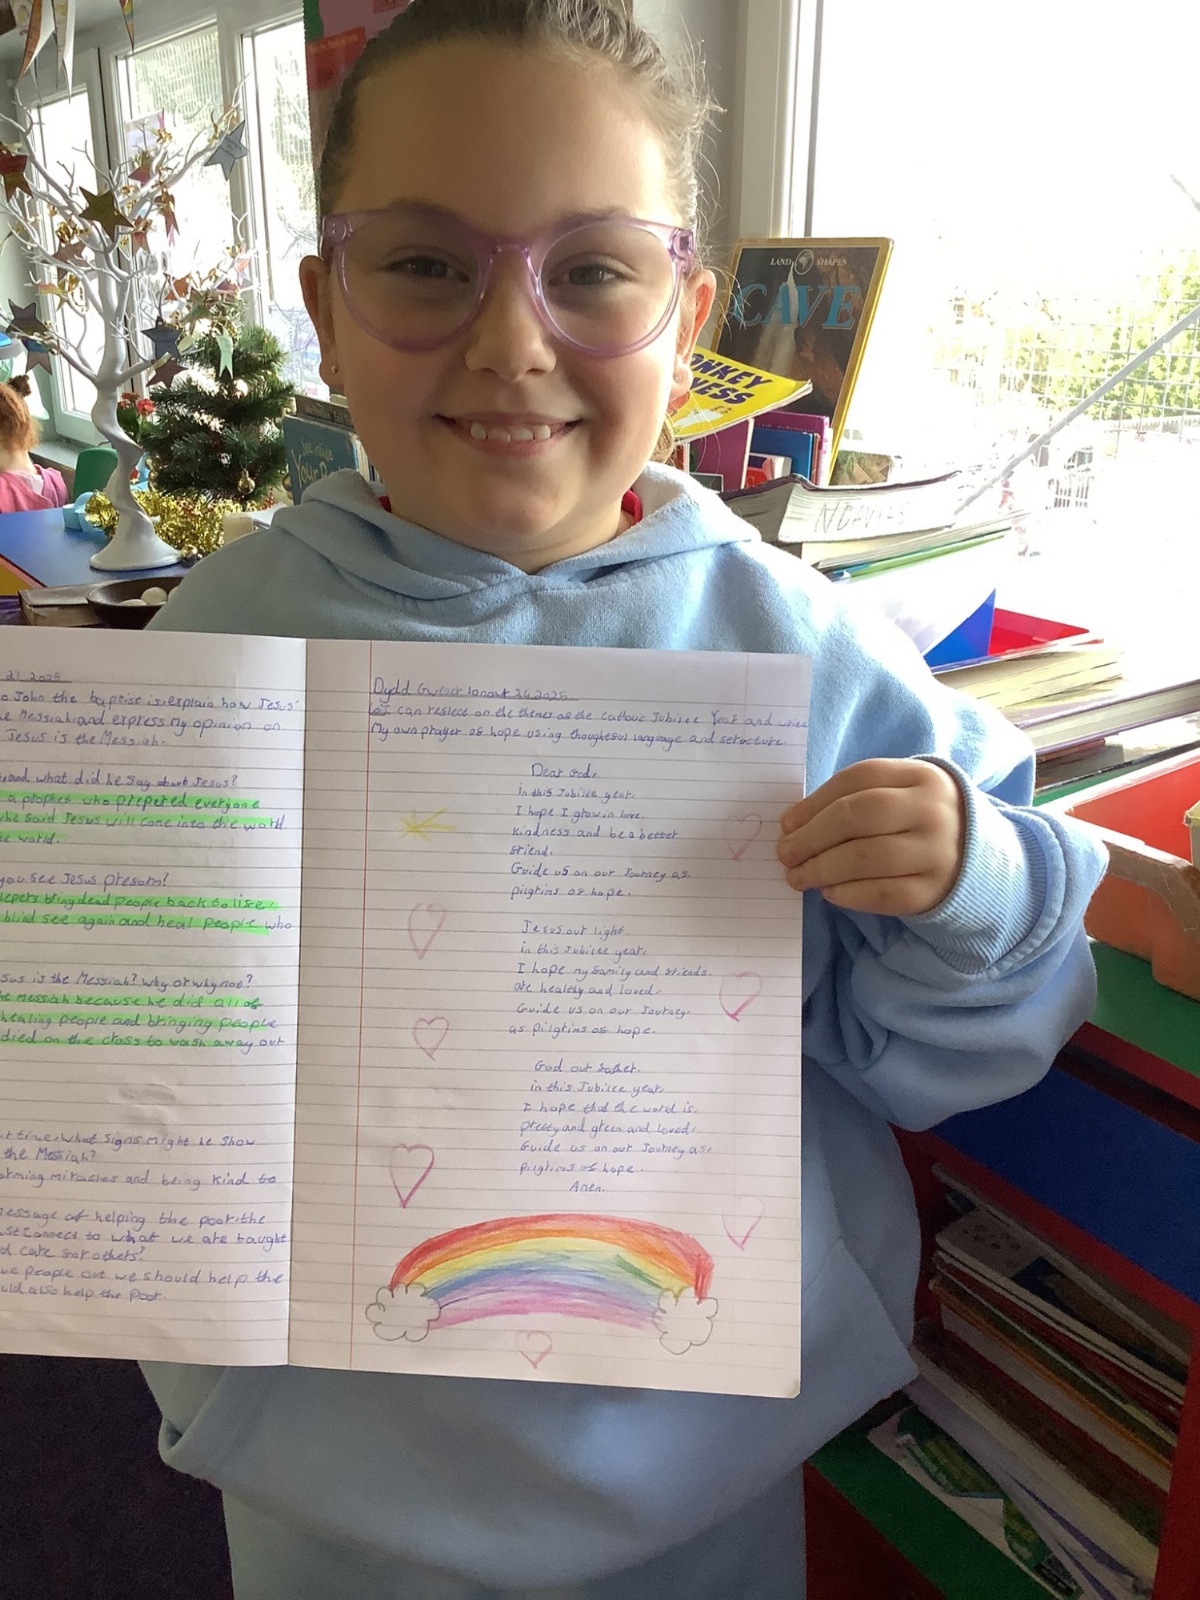 LAND SHAPES
CAVE
ONKEY
NESS
21 2025
o John the baptist is.explain how Jesus'
e Messiah and express my opinion on
Jesus is the Messiah.
and what did he say about Jesus?
a prophet who prepered everyone
he said Jesus will come into the world
e world.
you see Jesus present?
lepers bring dead people back to life.
blind see again and heal people who
sus is the Messiah? why or why not?
he messiah because he did all of
healing people and bringing people
died on the cross to wash away our
r time.what signs might he show
the Messiah?
orming miracles and being kind to
message of helping the poor.the
connect to what we are taught
d care for others?
ve people out we should help the
uld also help the poor.
Dydd Gwener Ionawr 24 2025
I can reflect on the themes of the catholic Jubilee Year and write
My own prayer of hope using thoughtful language and structure.
Dear God,
In this Jubilee year,
I hope I grow in love,
kindness and be a better
friend.
Guide us on our Journey as
pilgrims of hope.
Jesus our light,
in this Jubilee year,
I hope my family and friends
are healthy and loved.
Guide us on our Journey,
as pilgrims of hope.
God our father,
in this Jubilee year,
I hope that the world is
pretty and green and loved.
Guide us on our Journey as
pilgrims of hope.
Amen.